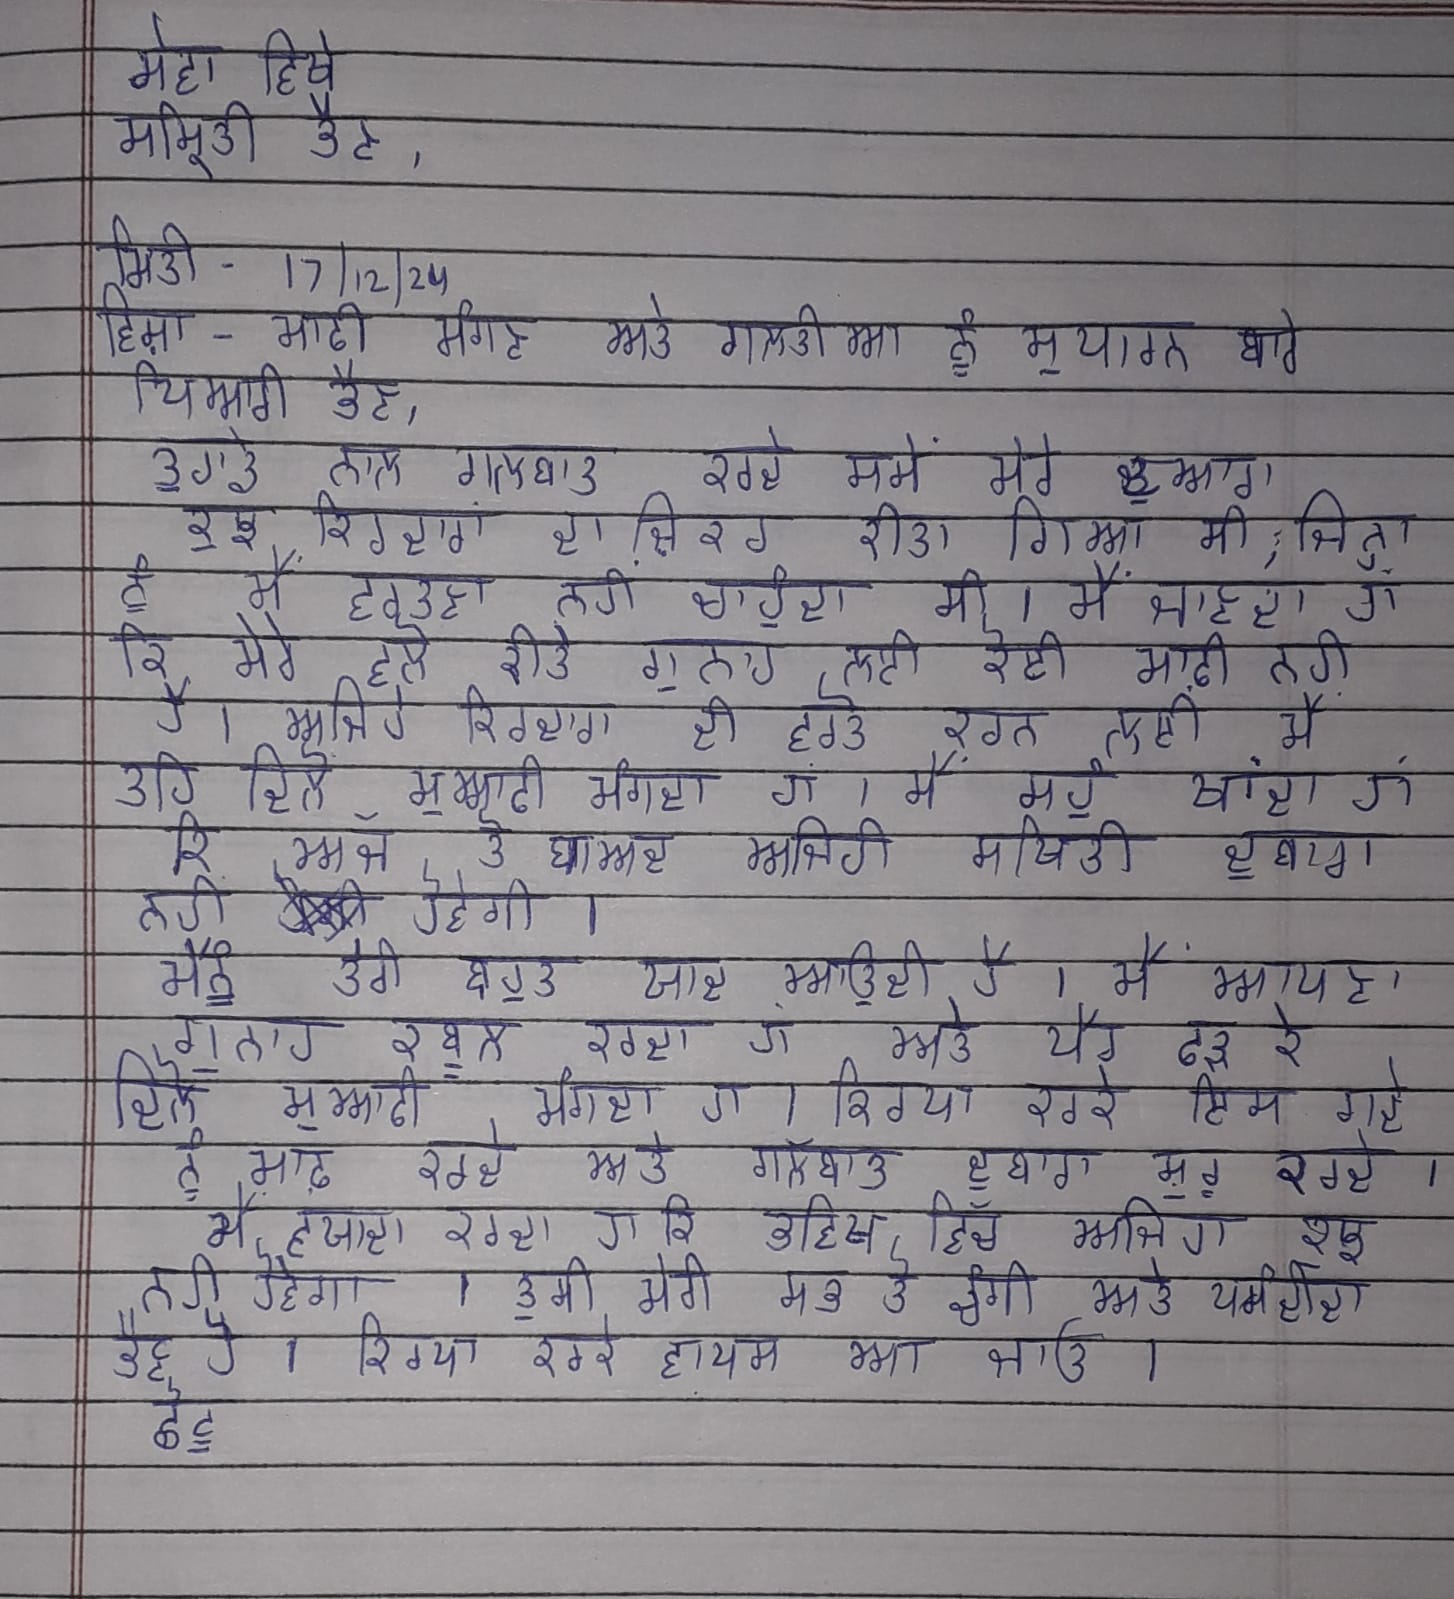 ਸੇਵਾ ਵਿਖੇ
ਸਮ੍ਰਿਤੀ ਭੈਣ,
ਮਿਤੀ - 17/12/24
ਵਿਸ਼ਾ - ਮਾਫੀ ਮੰਗਣ ਅਤੇ ਗਲਤੀਆ ਨੂੰ ਸੁਧਾਰਨ ਬਾਰੇ
ਪਿਆਰੀ ਭੈਣ,
ਤੁਹਾਡੇ ਨਾਲ ਗਲਬਾਤ ਕਰਦੇ ਸਮੇਂ ਮੇਰੇ ਦੁਆਰਾ
ਕੁਝ ਕਿਰਦਾਰਾਂ ਦਾ ਜ਼ਿਕਰ ਕੀਤਾ ਗਿਆ ਸੀ, ਜਿਨ੍ਹਾ
ਨੂੰ ਮੈਂ ਵਰਤਣਾ ਨਹੀ ਚਾਹੁੰਦਾ ਸੀ । ਮੈਂ ਜਾਣਦਾ ਹਾਂ
ਕਿ ਮੇਰੇ ਵਲੋ ਕੀਤੇ ਗੁਨਾਹ ਲਈ ਕੋਈ ਮਾਫ਼ੀ ਨਹੀ
ਹੈ । ਅਜਿਹੇ ਕਿਰਦਾਰਾ ਦੀ ਵਰਤੋ ਕਰਨ ਲਈ ਮੈਂ
ਤਹਿ ਦਿਲੋਂ ਮੁਆਫੀ ਮੰਗਦਾ ਹਾਂ । ਮੈਂ ਸਹੁੰ ਖਾਂਦਾ ਹਾਂ
ਕਿ ਅੱਜ ਤੋ ਬਾਅਦ ਅਜਿਹੀ ਸਥਿਤੀ ਦੁਬਾਰਾ
ਨਹੀ ਹੋਵੇਗੀ ।
ਮੈਨੂੰ ਤੇਰੀ ਬਹੁਤ ਯਾਦ ਆਉਂਦੀ ਹੈ । ਮੈਂ ਆਪਣਾ
ਗੁਨਾਹ ਕਬੂਲ ਕਰਦਾ ਹਾਂ ਅਤੇ ਪੈਰ ਫੜ ਕੇ
ਦਿਲੋਂ ਮੁਆਫੀ ਮੰਗਦਾ ਹਾ । ਕਿਰਪਾ ਕਰਕੇ ਇਸ ਗਧੇ
ਨੂੰ ਮਾਫ਼ ਕਰਦੇ ਅਤੇ ਗਲੱਬਾਤ ਦੁਬਾਰਾ ਸ਼ੁਰੂ ਕਰਦੇ ।
ਮੈਂ ਵਯਾਦਾ ਕਰਦਾ ਹਾ ਕਿ ਭਵਿਖ ਵਿਚੱ ਅਜਿਹਾ ਕੁਝ
ਨਹੀ ਹੋਵੇਗਾ । ਤੁਸੀ ਮੇਰੀ ਸਭ ਤੋ ਚੰਗੀ ਅਤੇ ਪਸੰਦੀਦਾ
ਭੈਣ ਹੋ । ਕਿਰਪਾ ਕਰਕੇ ਵਾਪਸ ਆ ਜਾਓ ।
ਛੋਟੂ